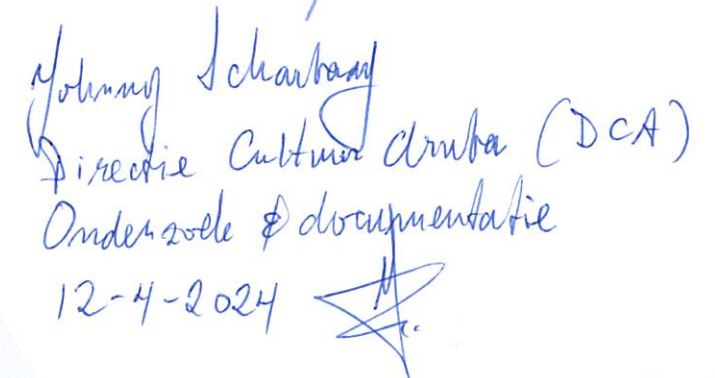 Johnny Scharbaay
Directie Cultuur Aruba (DCA)
Onderzoek & documentatie
12-4-2024